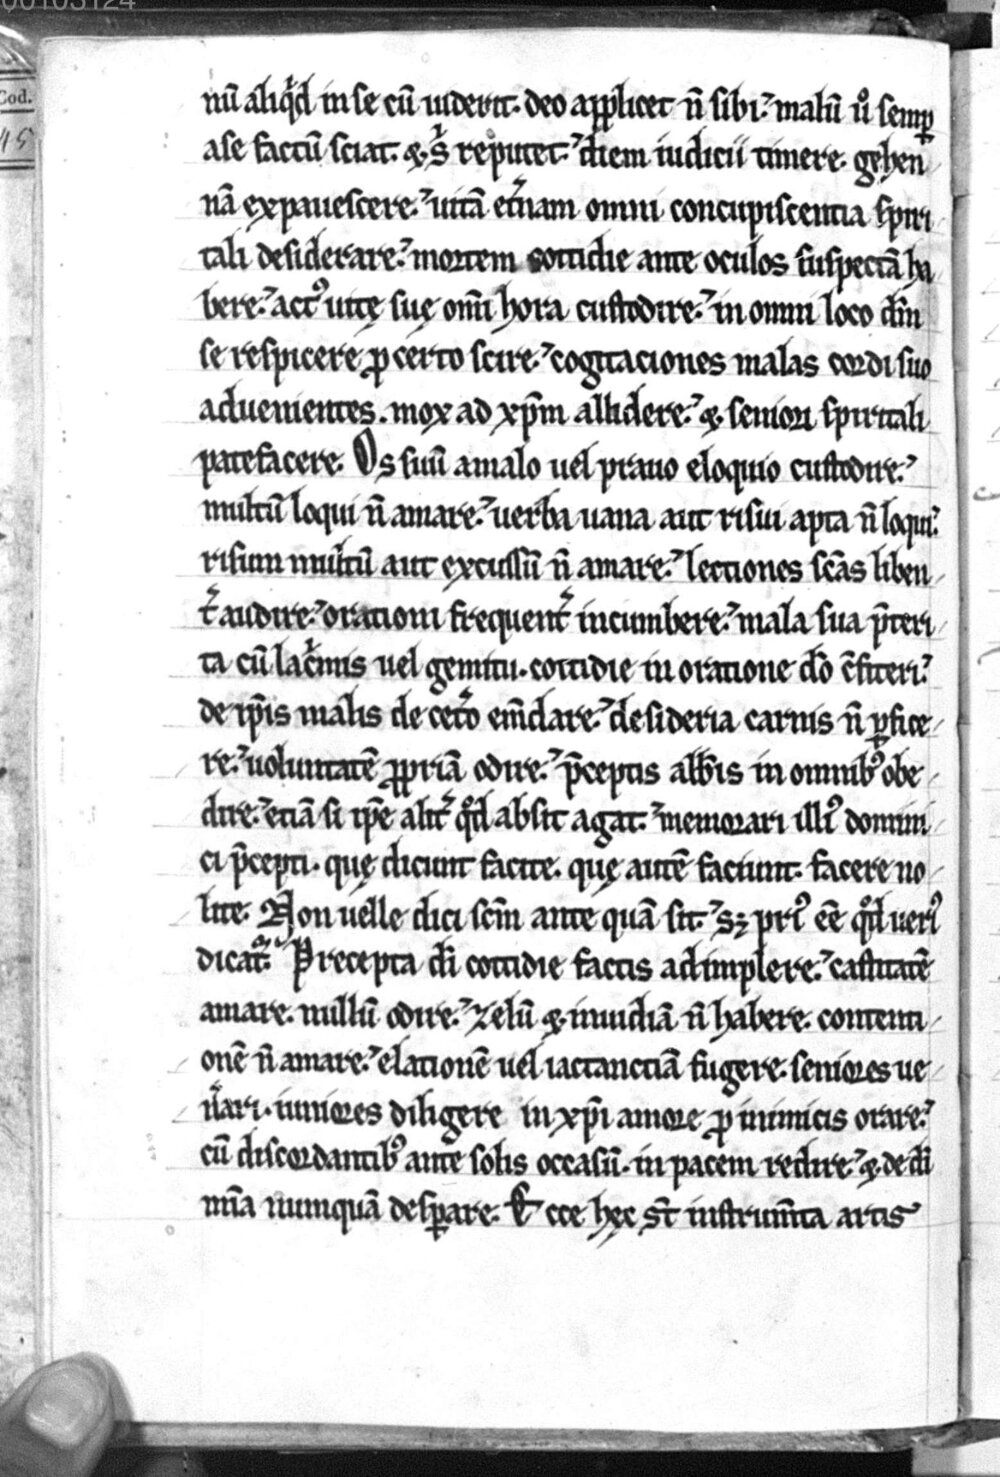 00103124
Cod.
45
nū aliqͥd in se cū uiderit. deo applicet n̄ sibi.᷒ malū ũo semꝑ
a se factū sciat. ⁊ s̄ reputet.᷒ diem iudicii timere. gehen
nā expauescere.᷒ uitā et̄nam omni concupiscentia spiri
tali desiderare.᷒ mortem cottidie ante oculos suspectā ha
bere.᷒ actꝰ uitę suę om̄i hora custodire.᷒ in omni loco dm̄
se respicere ꝓ certo scire.᷒ cogitaciones malas cordi suo
aduenientes. mox ad xp̄m allidere.᷒ ⁊ seniori spiritali
patefacere. Os suū a malo uel prauo eloquio custodire.᷒
multū loqui n̄ amare.᷒ uerba uana aut risui apta n̄ loqui.᷒
risum multū aut excussū n̄ amare.᷒ lectiones sc̄as liben
t̄ audire.᷒ orationi frequent̄ incumbere.᷒ mala sua p̄teri
ta cū lac̄mis uel gemitu. cottidie in oratione do̅ c̄fiteri.᷒
de ip̄is malis de cet̄o em̄dare.᷒ desideria carnis n̄ ꝑfice
re.᷒ uoluntatē ꝓpriā odire.᷒ p̄ceptis abb̄is in omnibꝰ obe
dire.᷒ etiā si ip̄e alit̄ qd̄ absit agat.᷒ memorari illiꝰ domini
ci p̄cepti. quę dicunt facite. quę autē faciunt. facere no
lite. Non uelle dici scm̄ ante quā sit.᷒ sꝫ priꝰ eē qd̄ ueriꝰ
dicat᷑. Precepta di̅ cottidie factis adimplere.᷒ castitatē
amare. nullū odire.᷒ zelū ⁊ inuidiā n̄ habere. contenti
onē n̄ amare.᷒ elationē uel iactanctiā fugere. seniores ue
n̄ari. iuniores diligere in xp̄i amore ꝓ inimicis orare.᷒
cū discordantibꝰ ante solis occasū. in pacem redire.᷒ ⁊ de di̅
mīa numquā desꝑare. Ecce hęc st̄ instrum̄ta artis